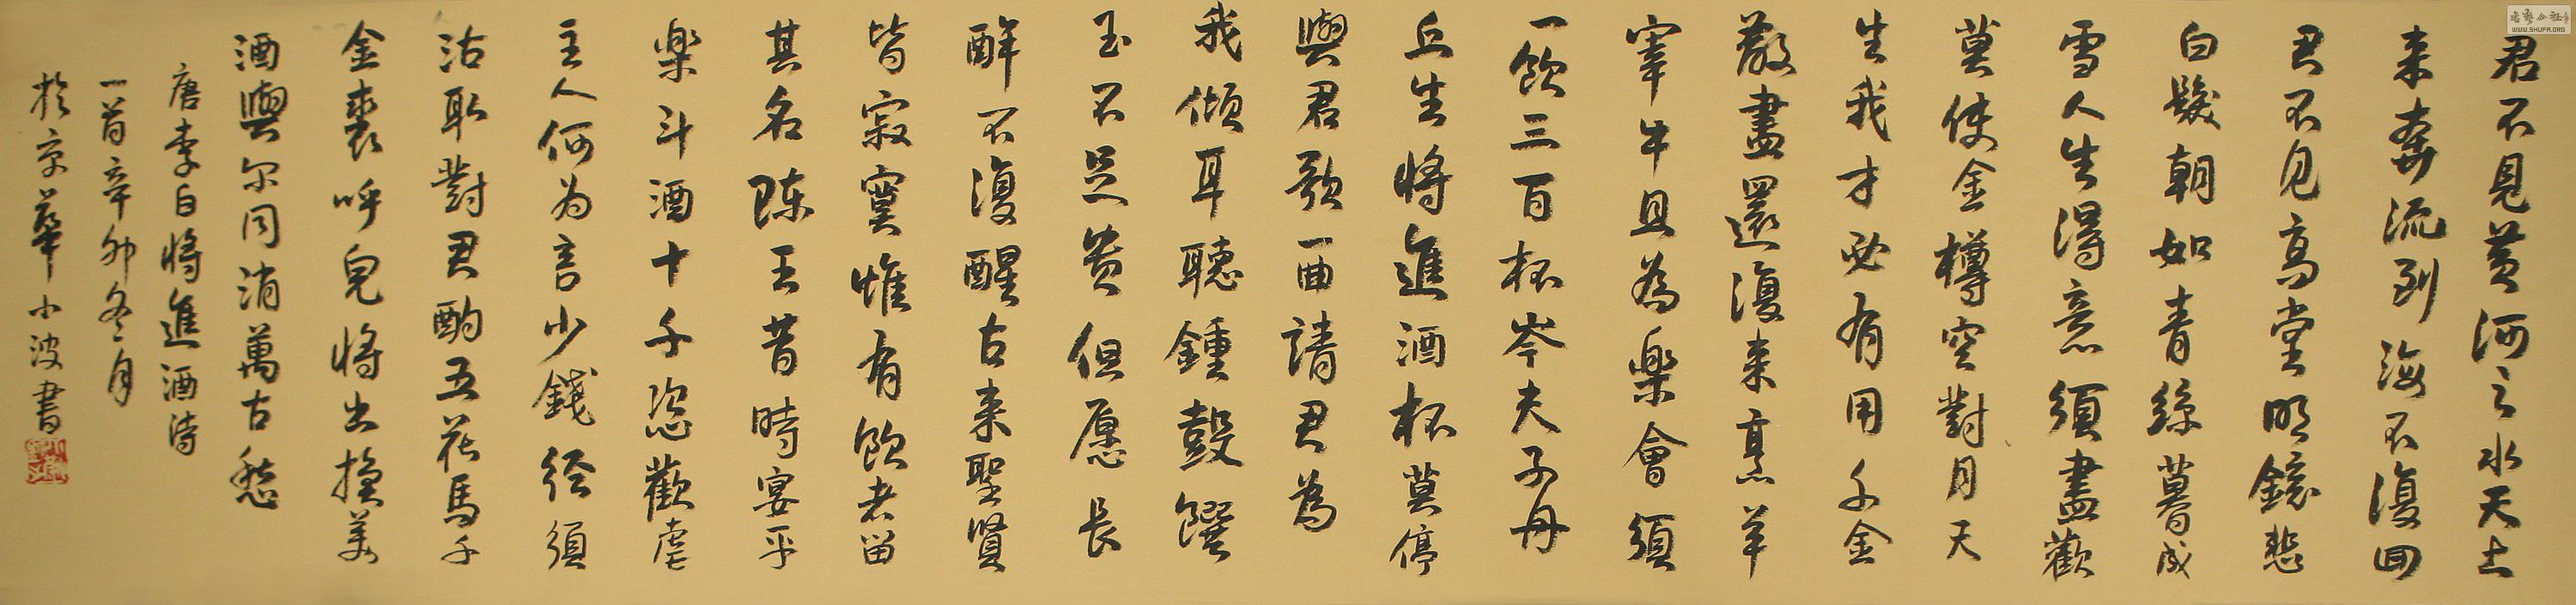 君不見黃河之水天上
来奔流到海不復回
君不見高堂明鏡悲
白髮朝如青絲暮成
雪人生得意須盡歡
莫使金樽空對月天
生我才必有用千金
散盡還復来烹羊
宰牛且為樂會須
一飲三百杯岑夫子丹
丘生將進酒杯莫停
與君歌一曲請君為
我傾耳聽鍾鼓饌
玉不足貴但愿長
醉不復醒古来聖賢
皆寂寞惟有飲者留
其名陳王昔時宴平
樂斗酒十千恣歡虐
主人何为言少錢徑須
沽取對君酌五花馬千
金裘呼兒將出換美
酒與尔同消萬古愁
唐李白將進酒詩
一首辛卯冬月
於京華小波書
WWW.SHUFA.ORG